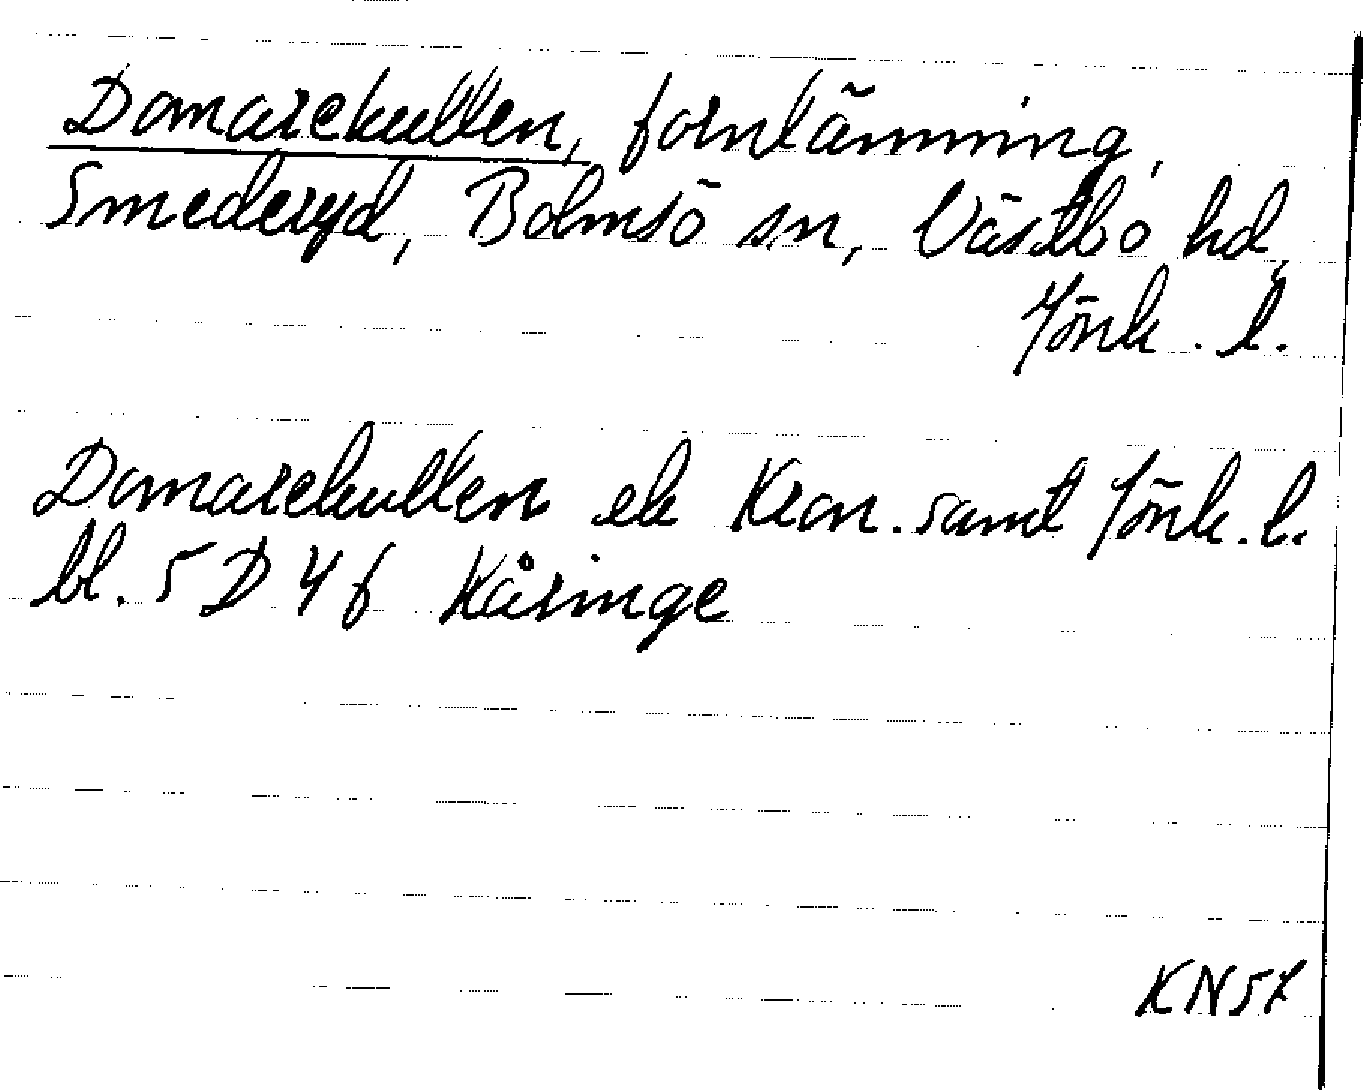 Domarekullen, fornlämning,
Smederyd, Bolmsö sn, Västbo hd,
Jönk. l.
Domarekullen ek Kron. samt Jönk. l.
bl. 5 D 4 f Kåringe
KN57